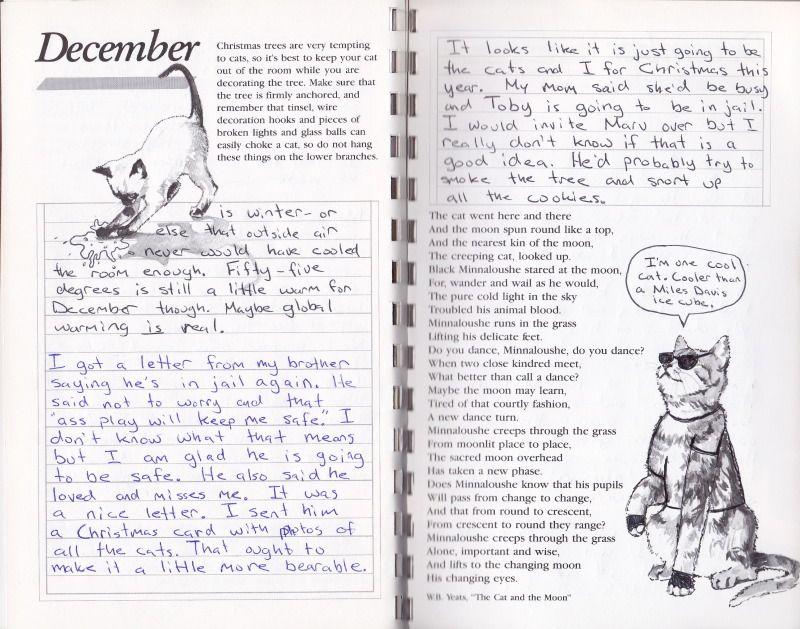 December
Christmas trees are very tempting
to cats, so it's best to keep your cat
out of the room while you are
decorating the tree. Make sure that
the tree is firmly anchored, and
remember that tinsel, wire
decoration hooks and pieces of
broken lights and glass balls can
easily choke a cat, so do not hang
these things on the lower branches.
is winter- or
else that outside air
never would have cooled
the room enough. Fifty-five
degrees is still a little warm for
December though. Maybe global
warming is real.
I got a letter from my brother
saying he's in jail again. He
said not to worry and that
"ass play will keep me safe." I
don't know what that means
but I am glad he is going
to be safe. He also said he
loved and misses me. It was
a nice letter. I sent him
a Christmas card with photos of
all the cats. That ought to
make it a little more bearable.
It looks like it is just going to be
the cats and I for Christmas this
year. My mom said she'd be busy
and Toby is going to be in jail.
I would invite Marv over but I
really don't know if that is a
good idea. He'd probably try to
smoke the tree and snort up
all the cookies.
The cat went here and there
And the moon spun round like a top,
And the nearest kin of the moon,
The creeping cat, looked up.
Black Minnaloushe stared at the moon,
For, wander and wail as he would,
The pure cold light in the sky
Troubled his animal blood.
Minnaloushe runs in the grass
Lifting his delicate feet.
Do you dance, Minnaloushe, do you dance?
When two close kindred meet,
What better than call a dance?
Maybe the moon may learn,
Tired of that courtly fashion,
A new dance turn.
Minnaloushe creeps through the grass
From moonlit place to place,
The sacred moon overhead
Has taken a new phase.
Does Minnaloushe know that his pupils
Will pass from change to change,
And that from round to crescent,
From crescent to round they range?
Minnaloushe creeps through the grass
Alone, important and wise,
And lifts to the changing moon
His changing eyes.
W.B. Yeats, "The Cat and the Moon"
I'm one cool
cat. Cooler than
a Miles Davis
ice cube.